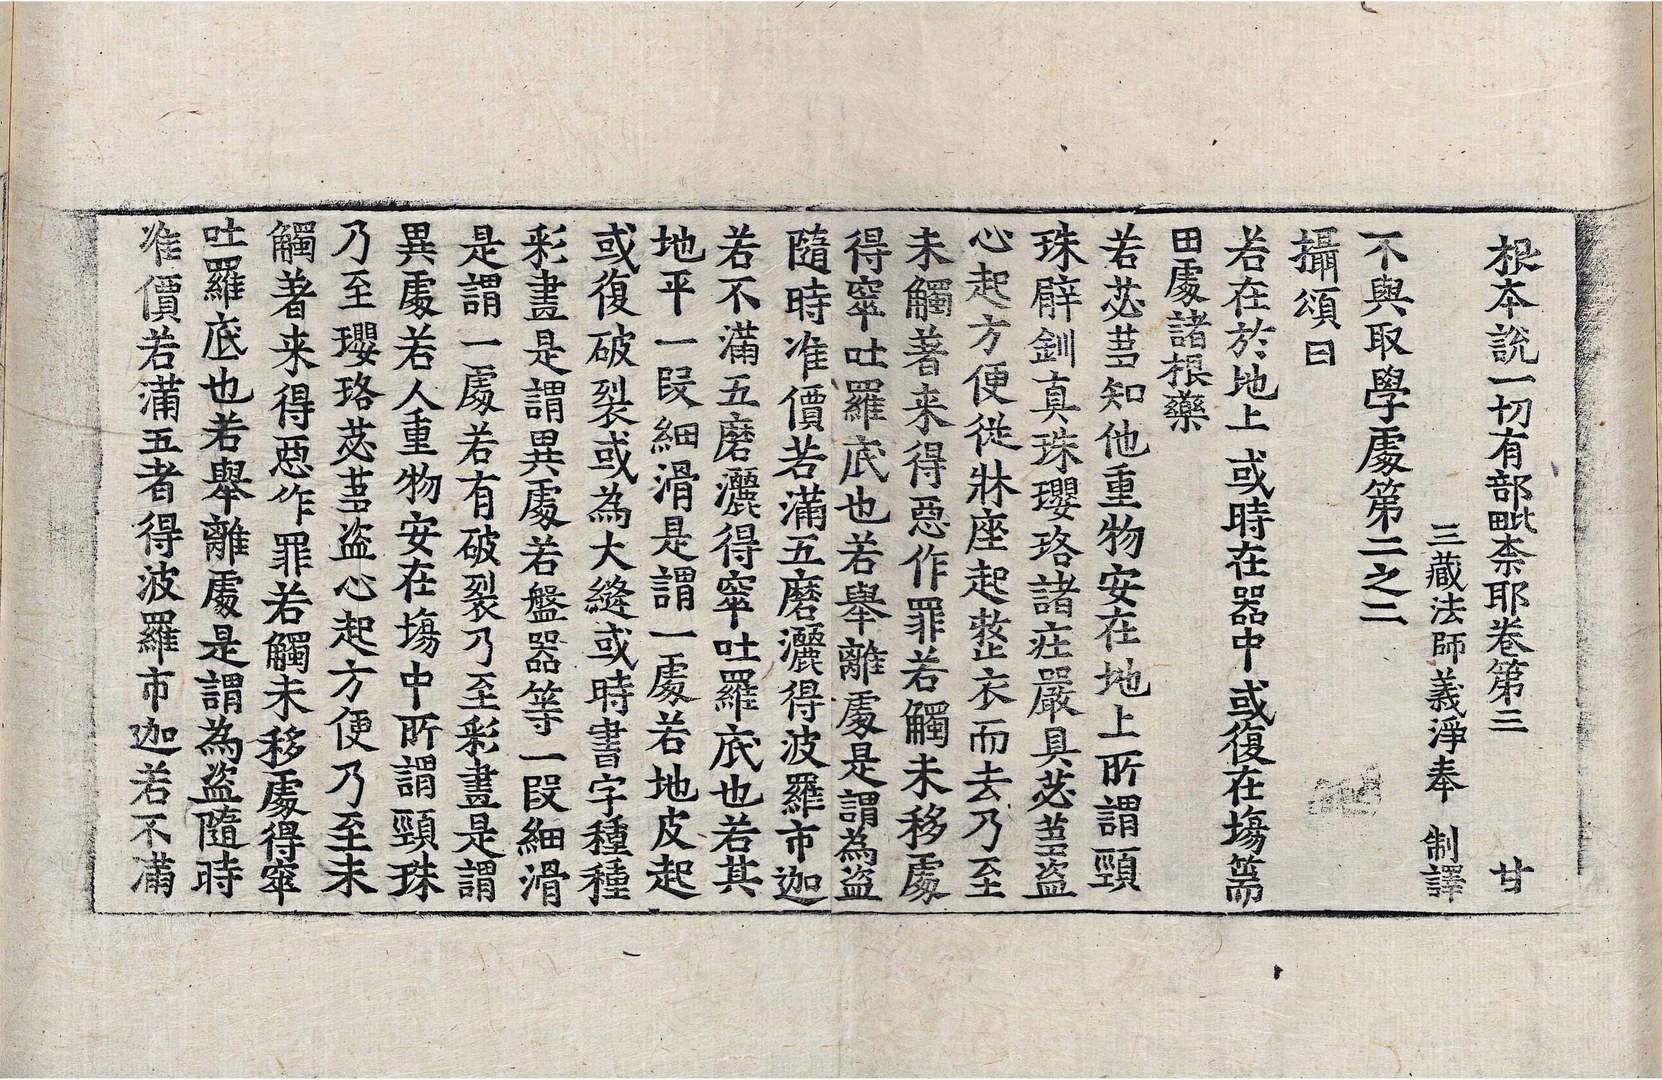 根本說一切有部毗柰耶卷第三 甘
三藏法師義淨奉 制譯
不與取學處第二之二
攝頌曰
若在於地上 或時在器中 或復在塲篅
田處諸根藥
若苾芻知他重物安在地上所謂頸
珠臂釧真珠瓔珞諸莊嚴具苾芻盜
心起方便從牀座起整衣而去乃至
未觸著来得惡作罪若觸未移處
得窣吐羅底也若舉離處是謂為盜
隨時准價若滿五磨灑得波羅市迦
若不滿五磨灑得窣吐羅底也若其
地平一段細滑是謂一處若地皮起
或復破裂或為大縫或時書字種種
彩畫是謂異處若盤器等一段細滑
是謂一處若有破裂乃至彩畫是謂
異處若人重物安在塲中所謂頸珠
乃至瓔珞苾芻盜心起方便乃至未
觸著来得惡作罪若觸未移處得窣
吐羅底也若舉離處是謂為盜隨時
准價若滿五者得波羅市迦若不滿